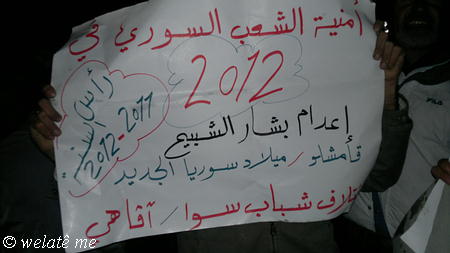 أمنية الشعب السوري في
2012
رأس السنة
2011-2012
إعدام بشار الشبيح
قامشلو / ميلاد سوريا الجديد
شباب سوا / آفاهي
FILA
© welatê me